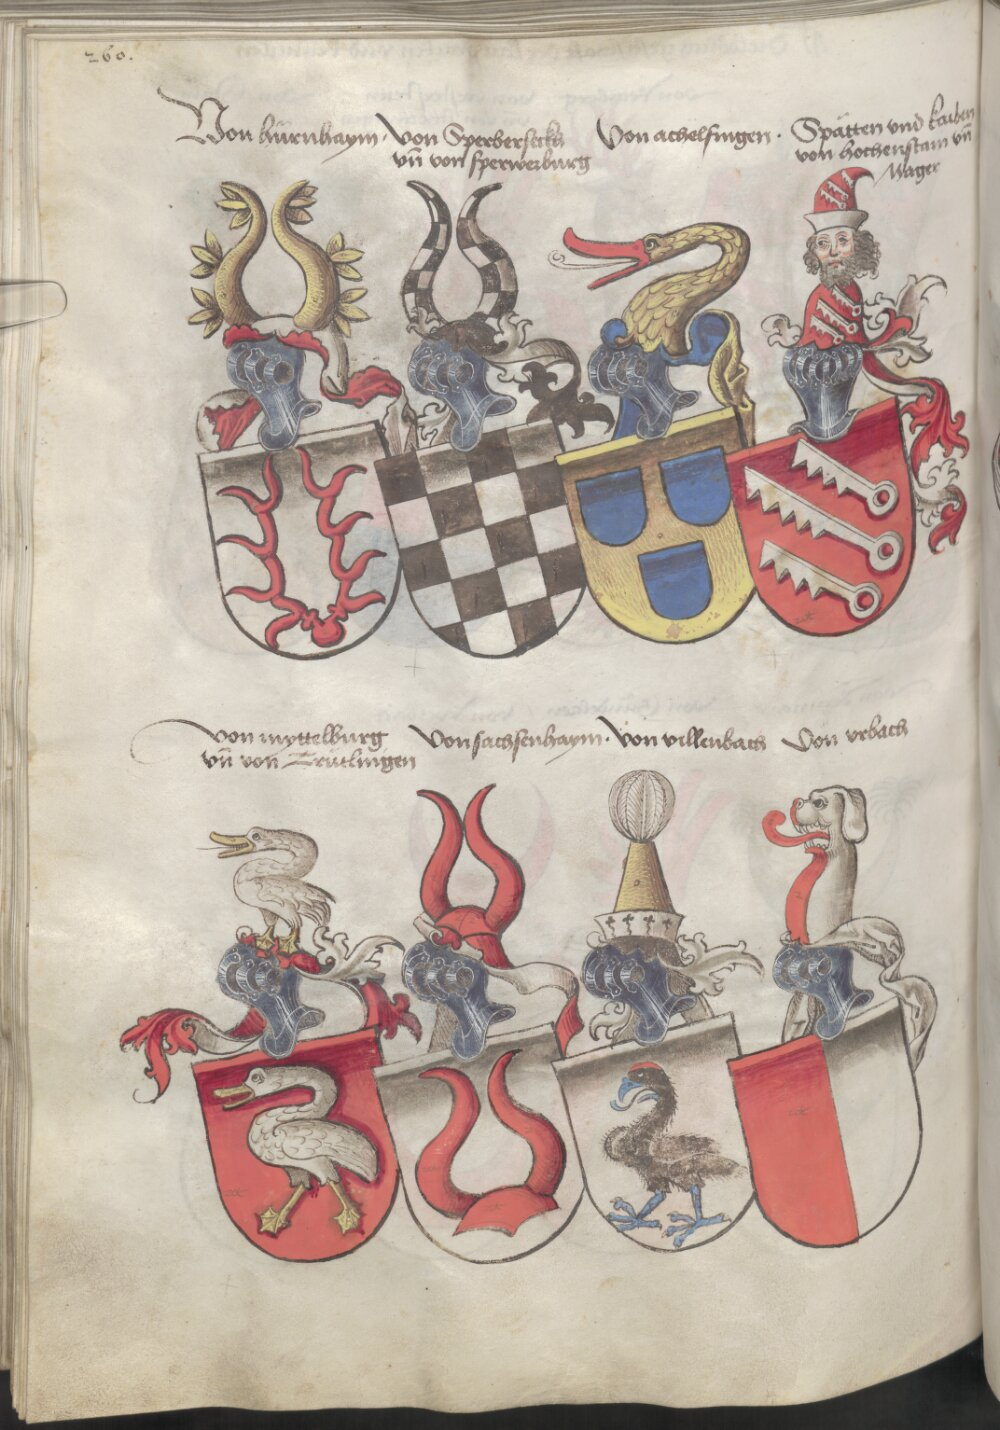 260.
Von hürnhaym · von Sperberseckh Von achelfingen · Spätten und kaiben
vn̄ von sperwerburg von hochenstain vn̄
Mager
von myttelburg Von sachsenhaym · Von villenbach Von vrbach
vn̄ von Trütlingen